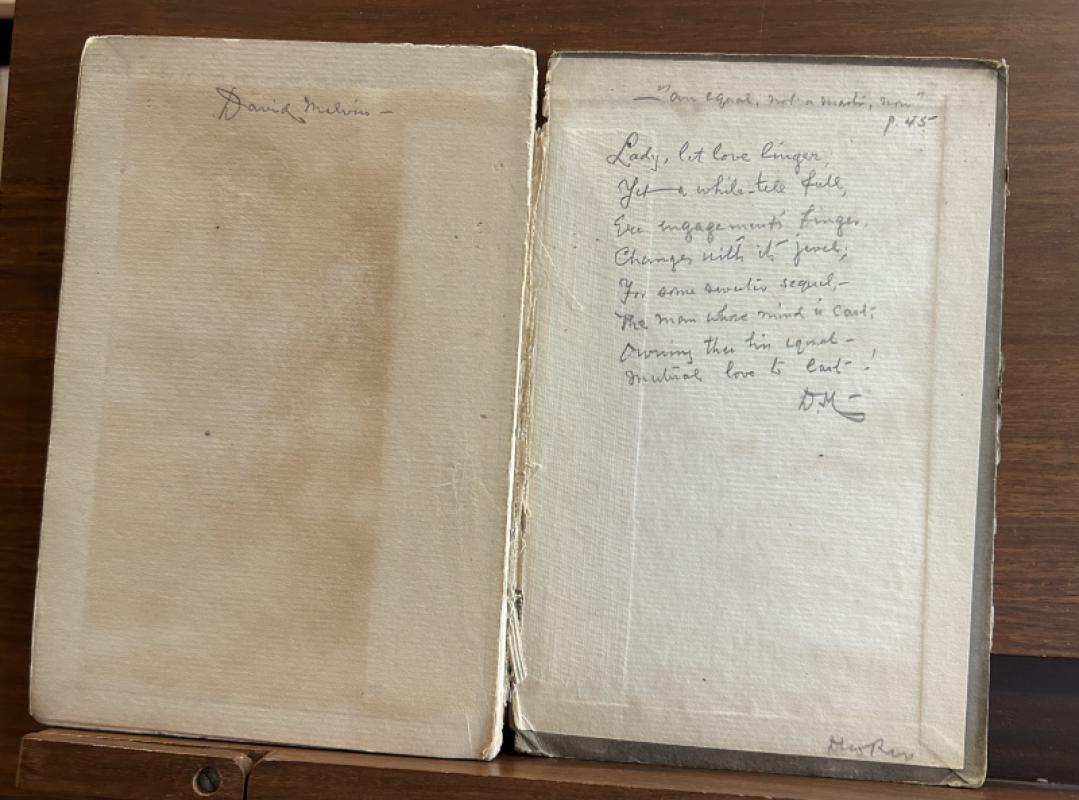 David Melvin —
— "an equal, not a master, now"
p. 45
Lady, let love linger,
Yet a while till full,
Ere engagement's finger,
Changes with its jewel;
For some sweeter sequel,—
The man whose mind is cast;
Owning thee his equal —
Mutual love to last !
D.M —